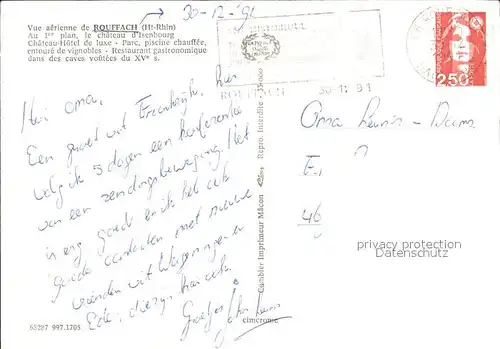 Vue aérienne de ROUFFACH (Ht-Rhin)
Au 1er plan, le château d'Isenbourg
Château-Hôtel de luxe - Parc, piscine chauffée,
entouré de vignobles - Restaurant gastronomique
dans des caves voûtées du XVe s.
30-12-91
Hoi Oma,
Een groet uit Frankrijk, hier
volg ik 5 dagen een konferentie
van een zendingsbeweging. Het
is erg goed en ik heb ook
goede contacten met nieuwe
vrienden uit Wageningen en
Ede,
Groetjes
68287 997.1705
Cambier Imprimeur Mâcon
Repro. Interdite
Mâcon
cimcrome
ROUFFACH
30-12 91
2,50
Oma
46
privacy protection
DOMNICK.AC